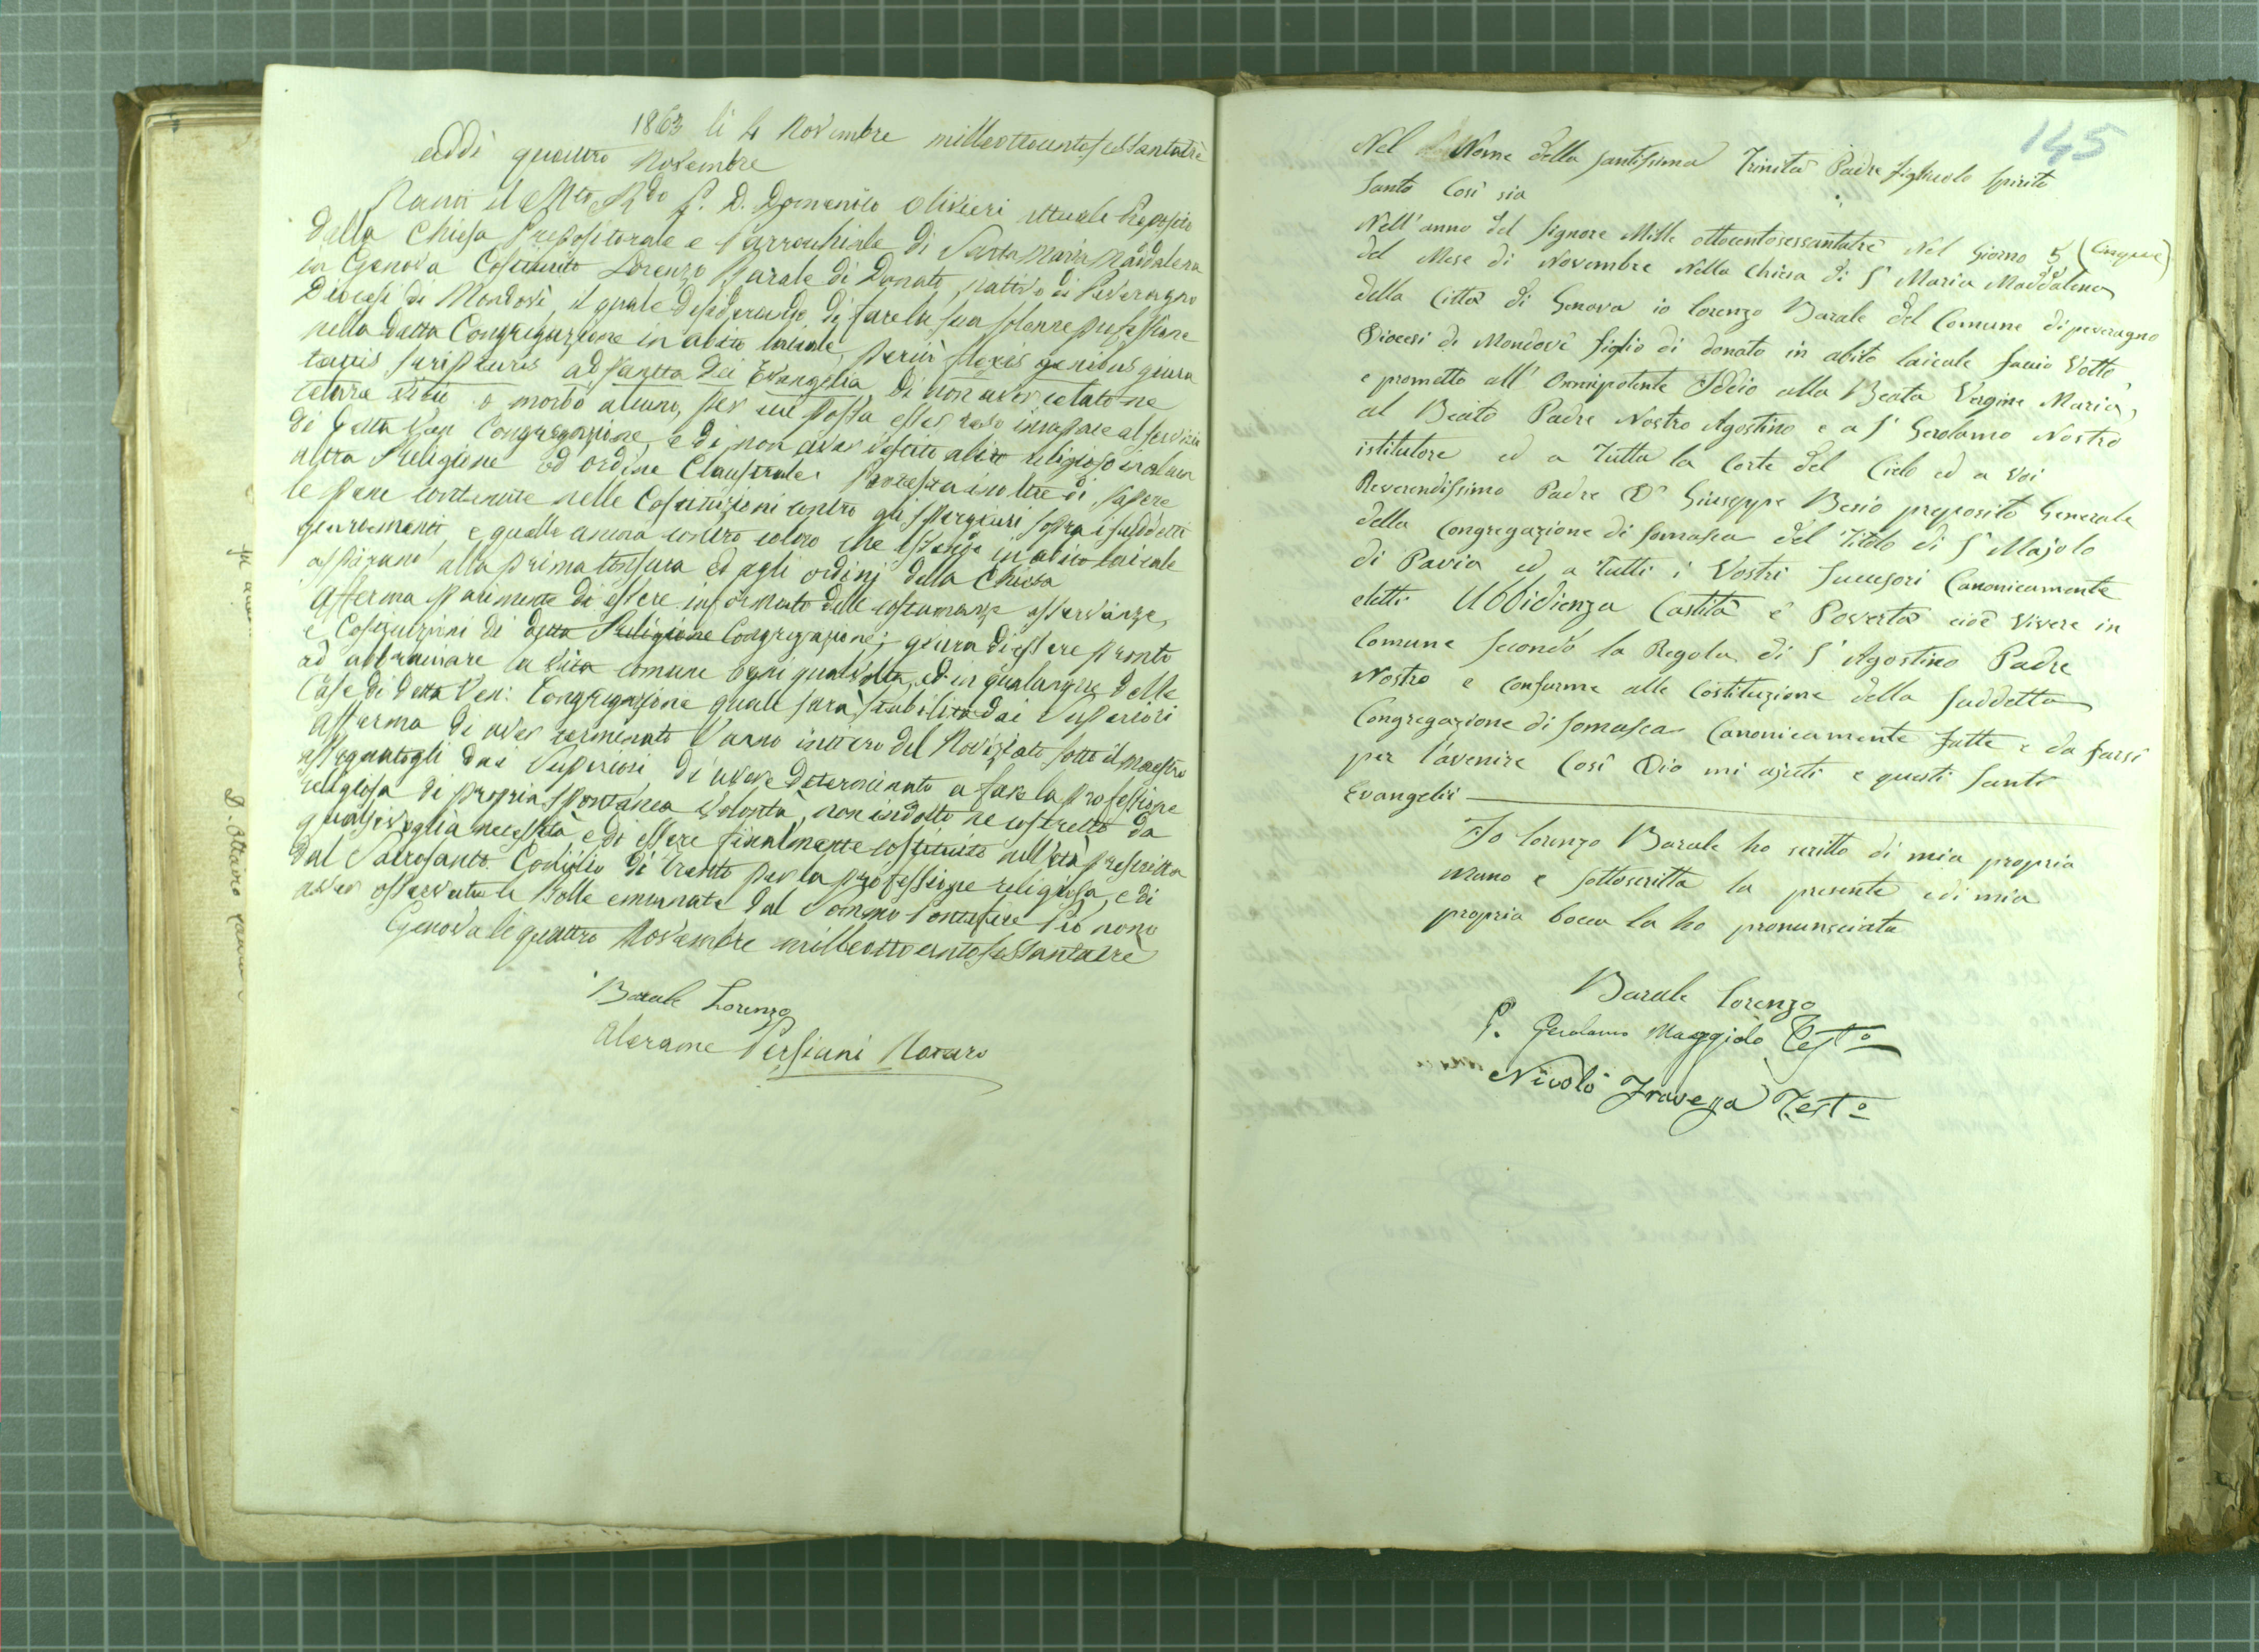 1863 li 4 Novembre milleottocentosessantatrè
addì quattro Novembre
Nanti il Mto Rdo P. D. Domenico Olivieri attuale Preposito
della Chiesa Prepositorale e Parrochiale di Santa Maria Maddalena
in Genova Costituito Lorenzo Barale di Donato, nativo di Peveragno
Diocesi di Mondovì, il quale desiderando di fare la sua solenne professione
nella detta Congregazione in abito laicale, perciò flexis genibus giura
tactis scripturis ad sancta Dei Evangelia di non aver celato ne
celare vizio o morbo alcuno, per cui possa esser reso incapace al servizio
di detta Ven Congregazione, e di non aver vestito abito religioso in alcun
altra Religione od ordine Claustrale. Protesta inoltre di sapere
le pene contenute nelle Costituzioni contro gli spergiuri sopra i suddetti
giuramenti, e quelle ancora contro coloro che essendo in abito laicale
aspirano alla prima tonsura ed agli ordini della Chiesa
Afferma parimente di essere informato delle costumanze osservanze,
e Costituzioni di detta Religione Congregazione; giura di essere pronto
ad abbracciare la vita comune ogni qualvolta, ed in qualunque delle
Case di detta Ven: Congregazione quale sarà stabilita dai Superiori
Afferma di aver terminato l'anno intiero del Noviziato sotto il maestro
assegnatogli dai Superiori, di avere determinato a fare la professione
religiosa di propria spontanea volontà, non indotto ne costretto da
qualsivoglia necessità e di essere finalmente costituito nell'età prescritta
dal Sacrosanto Concilio di Trento per la professione religiosa, e di
aver osservata le Bolle emanate dal Sommo Pontefice Pio nono
Genova li quattro Novembre milleottocentosessantatrè
Barale Lorenzo
Alerame Persiani Notaro
D. Ottavio
145
Nel Nome della santissima Trinità Padre figliuolo spirito
santo Così sia
Nell' anno del signore Mille ottocentosessantatrè Nel Giorno 5 (Cinque)
del Mese di Novembre Nella Chiesa di S Maria Maddalena
della Città di Genova io lorenzo Barale del Comune di peveragno
Diocesi di Mondovì figlio di donato in abito laicale faccio Votto
e prometto all' Onnipotente Iddio alla Beata Vergine Maria,
al Beato Padre Nostro Agostino e a S Gerolamo Nostro
istitutore, ed a Tutta la Corte del Cielo ed a Voi
Reverendissimo Padre Dn Giuseppe Besio preposito Generale
della Congregazione di somasca del Titolo di S Majolo
di Pavia ed a Tutti i Vostri Successori Canonicamente
eletti Ubbidienza Castità e Povertà cioè Vivere in
Comune secondo la Regola di S Agostino Padre
Nostro e Conforme alle Costituzione della suddetta
Congregazione di somasca Canonicamente fatte e da farsi
per l'avenire Così Dio mi ajuti e questi santi
Evangelii
Io lorenzo Barale ho scritto di mia propria
mano e sottoscritta la presente e di mia
propria bocca la ho pronunsciata
Barale lorenzo
P. Gerolamo Maggiolo Testo
Nicolò Travega Testo